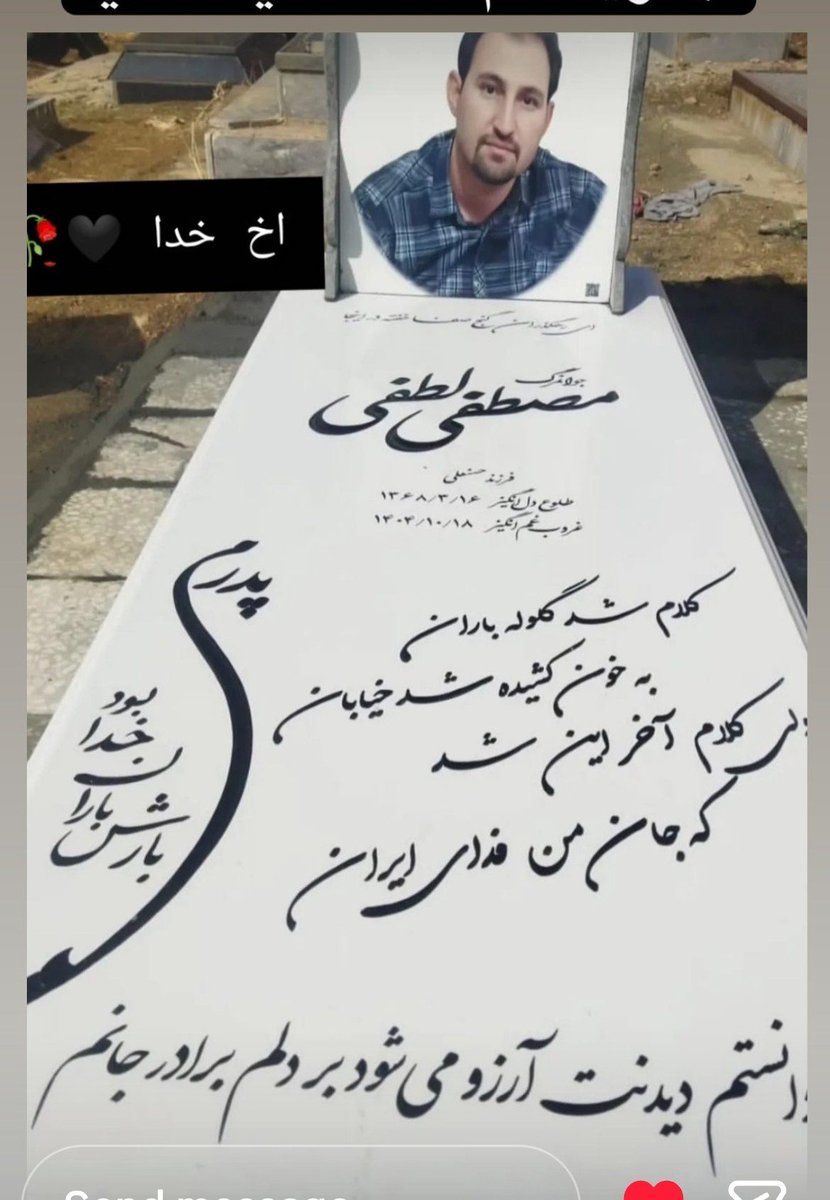 اخ خدا
ای رهگذر
جوانمرگ
مصطفی لطفی
فرزند حسنعلی
طلوع دل‌انگیز ۱۳۶۸/۳/۱۶
غروب غم انگیز ۱۴۰۴/۱۰/۱۸
کلام شد گلوله باران
به خون کشیده شد خیابان
ولی کلام آخر این شد
که جان من فدای ایران
پدرم
بارش باران خدا بود
دیدنت آرزو می شود بر دلم برادر جانم
Send message